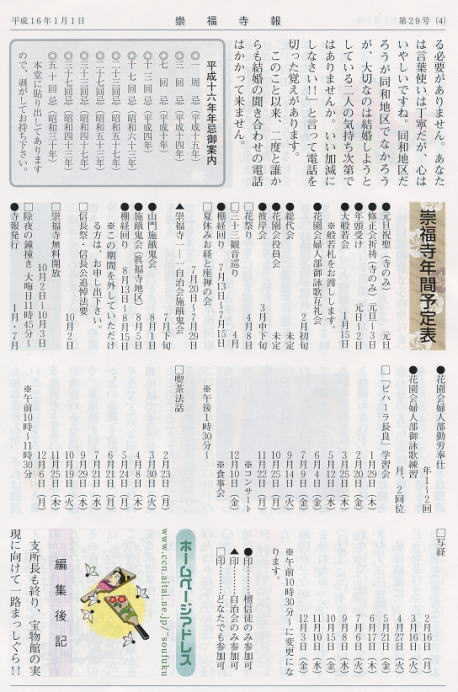 平成16年1月1日
崇福寺報
第29号 (4)
る必要がありません。あなた
は言葉使いは丁寧だが、心は
いやしいですね。同和地区だ
ろうが同和地区でなかろう
が、大切なのは結婚しようと
している二人の気持ち次第で
はありませんか。いい加減に
しなさい!!」と言って電話を
切った覚えがあります。
このこと以来、二度と誰か
らも結婚の聞き合わせの電話
はかかって来ません。
平成十六年年忌御案内
◎一周忌(平成十五年)
◎三回忌(平成十四年)
◎七回忌(平成十年)
◎十三回忌(平成四年)
◎十七回忌(昭和六十三年)
◎二十三回忌(昭和五十七年)
◎二十七回忌(昭和五十三年)
◎三十三回忌(昭和四十七年)
◎三十七回忌(昭和四十三年)
◎五十回忌(昭和三十年)
本堂に貼り出してあります
ので、剥がしてお持ち下さい。
崇福寺年間予定表
●元旦祝聖(寺のみ) 元旦
●修正会祈祷(寺のみ) 元旦~3日
●年頭受け 元旦~2日
●大般若会 1月15日
※般若札をお渡しします。
●花園会婦人部御詠歌互礼会
2月初旬
●総代会 未定
●花園会役員会 未定
●彼岸会 3月中下旬
●花祭り 4月8日
□三十三観音巡り 4月
●棚経回り 7月13日~7月15日
□夏休みお経と座禅の会
7月20日~7月29日
▲崇福寺に一自治会施餓鬼会
7月下旬
●山門施餓鬼会 8月1日
●施餓鬼会(眞福寺地区) 8月5日
●棚経回り 8月13日~8月15日
※この期間を外していただけ
る方は、お申し出下さい。
□信長祭・信長公追悼法要
10月2日
□崇福寺無料開放
10月2日~10月3日
□除夜の鐘撞き 大晦日11時45分~
●寺報発行 1月・7月
●花園会婦人部勤労奉仕
年1~2回
●花園会婦人部御詠歌練習
月、2回位
□「ビハーラ長良」学習会
1月29日(木)
2月20日(金)
3月25日(木)
5月12日(水)
6月4日(金)
7月9日(金)
9月14日(火)
10月25日(月)
11月22日(月)
12月10日(金)
※コンサート
※食事会
※午後1時30分~
□喫茶法話
2月23日(月)
3月30日(火)
4月8日(木)
5月24日(月)
6月21日(月)
7月21日(水)
9月29日(水)
10月19日(火)
11月25日(木)
12月6日(月)
※午前10時~11時30分
□写経
2月16日(月)
3月16日(火)
4月27日(火)
5月21日(金)
6月17日(木)
7月6日(火)
9月8日(水)
10月15日(金)
11月10日(水)
12月3日(金)
※午前10時30分~に変更にな
ります。
●印……檀信徒のみ参加可
▲印……自治会のみ参加可
□印……どなたでも参加可
ホームページアドレス
www.ccn.aitai.ne.jp/~soufuku
編集後記
支所長も終り、宝物館の実
現に向けて一路まっしぐら!!